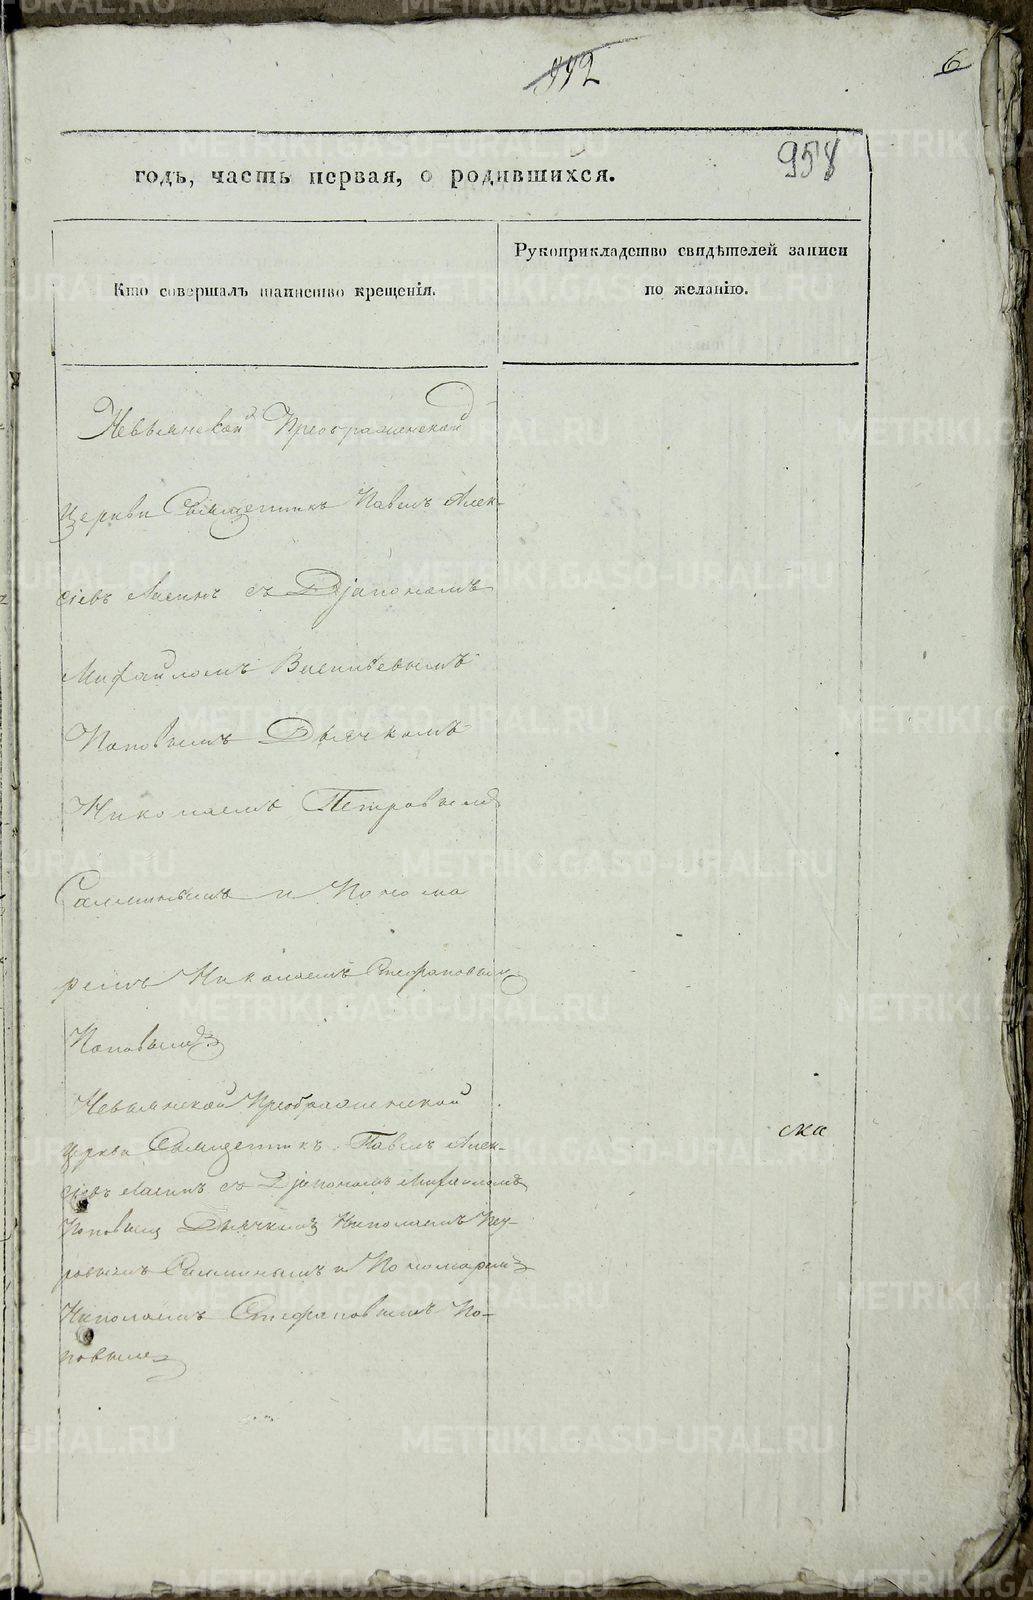 992
6
958
годъ, часть первая, о родившихся.
Кто совершалъ таинство крещенія.
Рукоприкладство свидѣтелей записи
по желанію.
Невьянской Преображенской
Церкви Священникъ Павелъ Алек-
сіевъ съ Діакономъ
Михайломъ Васильевымъ
Поповымъ Дьячкомъ
Николаемъ Петровымъ
и Понома
ремъ Николаемъ Стефановымъ
Поповымъ
Невьянской Преображенской
Церкви Священникъ Павелъ Алек-
сіевъ съ Діакономъ Михайломъ
Поповымъ Дьячкомъ Николаемъ Пет-
ровымъ и Пономаремъ
Николаемъ Стефановымъ По-
повымъ
ска
METRIKI.GASO-URAL.RU